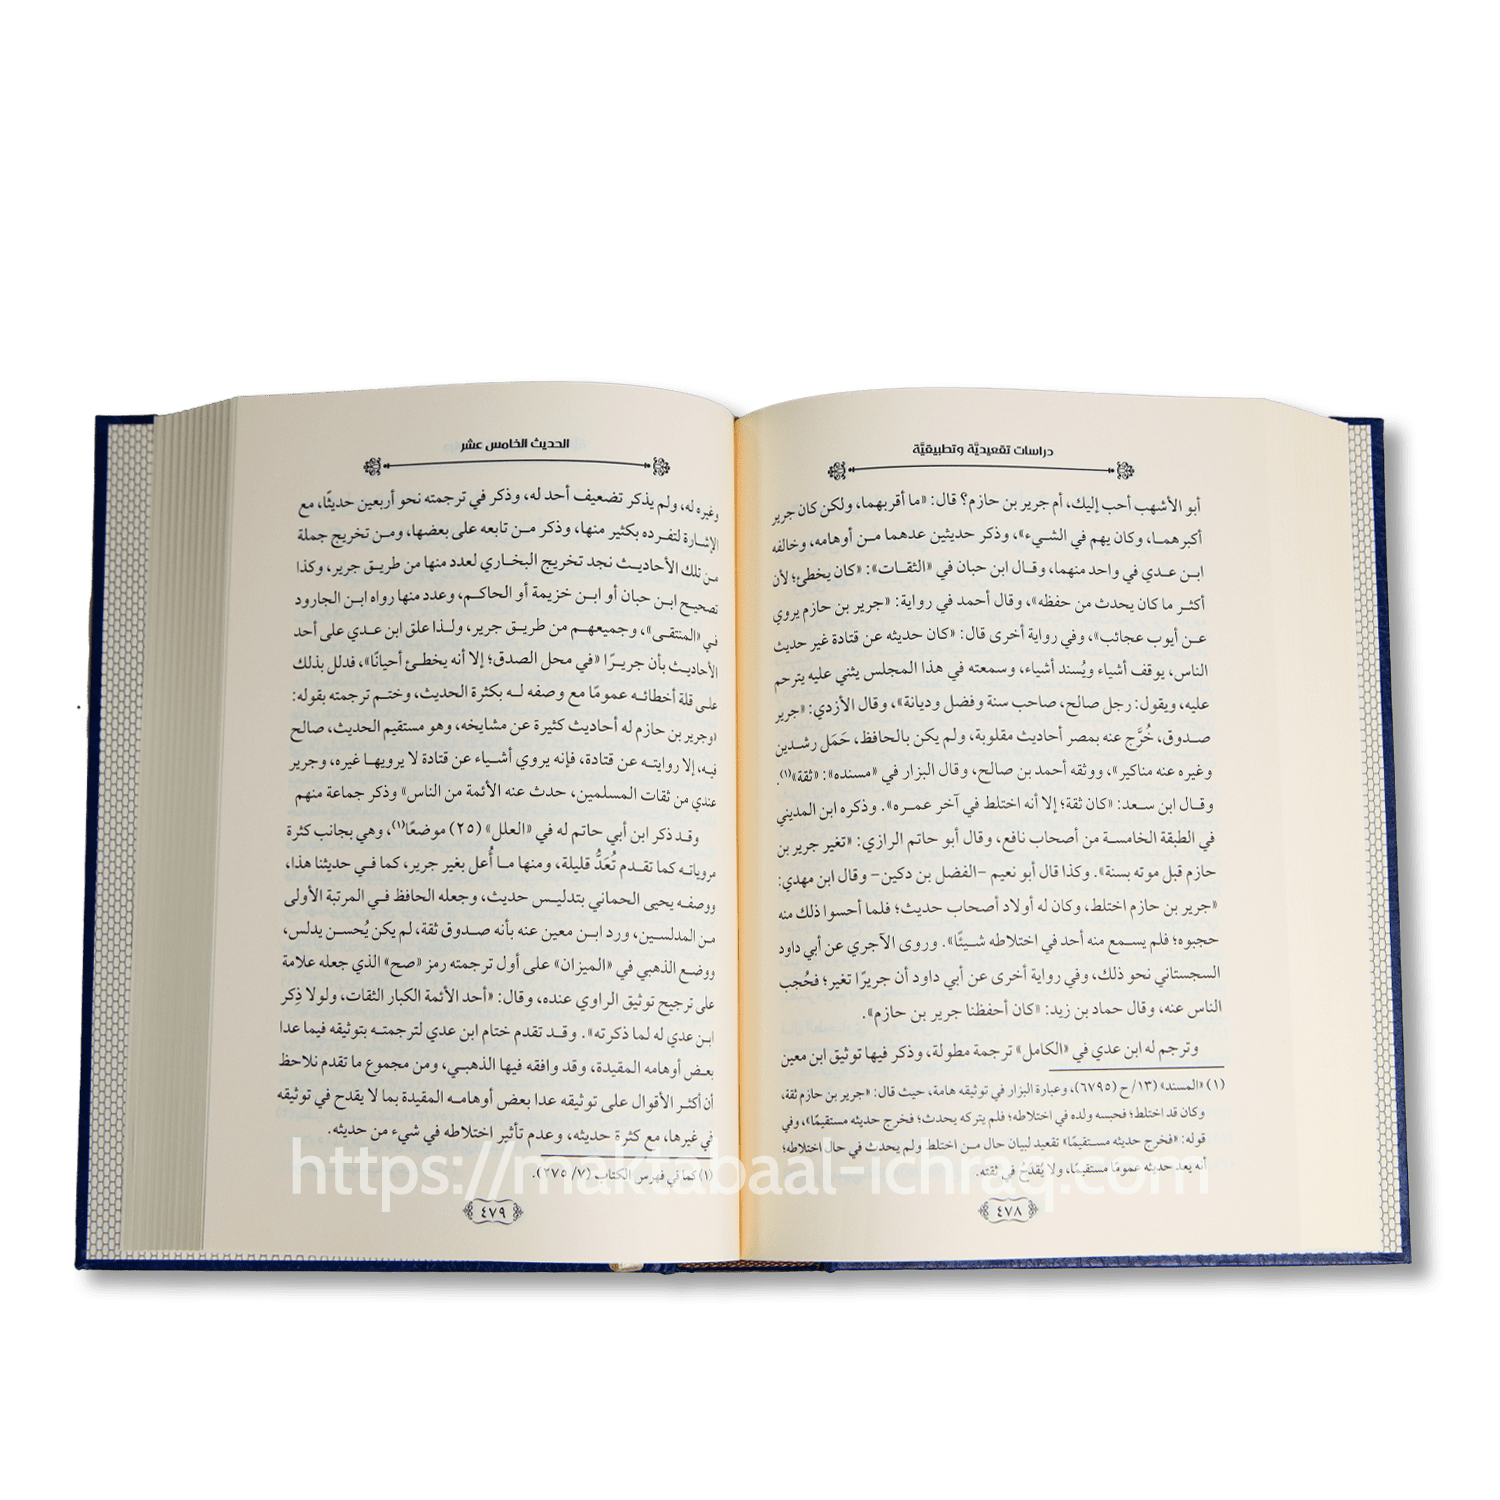 دراسات تقعيديَّة وتطبيقيَّة
أبو الأشهب أحب إليك، أم جرير بن حازم؟ قال: «ما أقربهما، ولكن كان جرير
أكبرهمـا، وكان يهم في الشيء»، وذكر حديثين عدهما مـن أوهامه، وخالفه
ابـن عـدي في واحد منهما، وقـال ابن حبان في «الثقـات»: «كان يخطئ؛ لأن
أكثـر ما كان يحدث من حفظه»، وقال أحمد في رواية: «جرير بن حازم يروي
عـن أيوب عجائب»، وفي رواية أخرى قال: «كان حديثه عن قتادة غير حديث
الناس، يوقف أشياء ويُسند أشياء، وسمعته في هذا المجلس يثني عليه يترحم
عليه، ويقول: رجل صالح، صاحب سنة وفضل وديانة»، وقال الأزدي: «جرير
صـدوق، خُرَّج عنه بمصر أحاديث مقلوبة، ولم يكن بالحافظ، حَمَل رشـدين
وغيره عنه مناكير»، ووثقه أحمد بن صالح، وقال البزار في «مسنده»: «ثقة»(١).
وقـال ابن سـعد: «كان ثقة؛ إلا أنه اختلط في آخر عمـره». وذكره ابن المديني
في الطبقة الخامسـة من أصحاب نافع، وقال أبو حاتم الرازي: «تغير جرير بن
حازم قبل موته بسنة». وكذا قال أبو نعيم -الفضل بن دكين- وقال ابن مهدي:
«جرير بن حازم اختلط، وكان له أولاد أصحاب حديث؛ فلما أحسوا ذلك منه
حجبوه؛ فلم يسـمع منه أحد في اختلاطه شـيئًا». وروى الآجري عن أبي داود
السجستاني نحو ذلك، وفي رواية أخرى عن أبي داود أن جريرًا تغير؛ فحُجب
الناس عنه، وقال حماد بن زيد: «كان أحفظنا جرير بن حازم».
وترجم له ابن عدي في «الكامل» ترجمة مطولة، وذكر فيها توثيق ابن معين
(١) «المسند» (١٣/ ح (٦٧٩٥)، وعبارة البزار في توثيقه هامة، حيث قال: «جرير بن حازم ثقة،
وكان قد اختلط؛ فحبسه ولده في اختلاطه؛ فلم يتركه يحدث؛ فخرج حديثه مستقيمًا»، وفي
قوله: «فخرج حديثه مسـتقيمًا» تقعيد لبيان حال مـن اختلط ولم يحدث في حال اختلاطه؛
أنه يعد حديثه عمومًا مستقيمًا، ولا يُقدَحُ في ثقته.
٤٧٨
الحديث الخامس عشر
وغيره له، ولم يذكر تضعيف أحد له، وذكر في ترجمته نحو أربعين حديثًا، مع
الإشارة لتفـرده بكثير منها، وذكر مـن تابعه على بعضها، ومـن تخريج جملة
مـن تلك الأحاديـث نجد تخريج البخـاري لعدد منها من طريـق جرير، وكذا
تصحيـح ابـن حبان أو ابـن خزيمة أو الحاكـم، وعدد منها رواه ابـن الجارود
في «المنتقـى»، وجميعهـم من طريـق جرير، ولـذا علق ابن عـدي على أحد
الأحاديـث بأن جريـرًا «في محل الصدق؛ إلا أنه يخطـئ أحيانًا»، فدلل بذلك
علـى قلة أخطائـه عمومًا مع وصفه لـه بكثرة الحديث، وختـم ترجمته بقوله:
«وجرير بن حازم له أحاديث كثيرة عن مشايخه، وهو مستقيم الحديث، صالح
فيـه، إلا روايتـه عن قتادة، فإنه يروي أشياء عن قتادة لا يرويهـا غيره، وجرير
عندي من ثقات المسلمين، حدث عنه الأئمة من الناس» وذكر جماعة منهم
وقـد ذكر ابن أبي حاتم له في «العلل» (٢٥) موضعًا(١)، وهي بجانب كثرة
مروياتـه كما تقـدم تُعَدُّ قليلة، ومنها مـا أُعل بغير جرير، كما فـي حديثنا هذا،
ووصفـه يحيى الحماني بتدليـس حديث، وجعله الحافظ فـي المرتبة الأولى
مـن المدلسـين، ورد ابـن معين عنه بأنه صـدوق ثقة، لم يكن يُحسـن يدلس،
ووضـع الذهبي في «الميزان» على أول ترجمته رمز «صح» الذي جعله علامة
على ترجيح توثيق الراوي عنده، وقال: «أحد الأئمة الكبار الثقات، ولولا ذِكر
ابـن عدي له لما ذكرته». وقـد تقدم ختام ابن عدي لترجمتـه بتوثيقه فيما عدا
بعـض أوهامه المقيدة، وقد وافقه فيها الذهبـي، ومن مجموع ما تقدم نلاحظ
أن أكثـر الأقوال على توثيقه عدا بعض أوهامـه المقيدة بما لا يقدح في توثيقه
في غيرها، مع كثرة حديثه، وعدم تأثير اختلاطه في شيء من حديثه.
(١) كما في فهرس الكتاب (٧/ ٢٧٥).
٤٧٩
https://maktabaal-ichraq.com